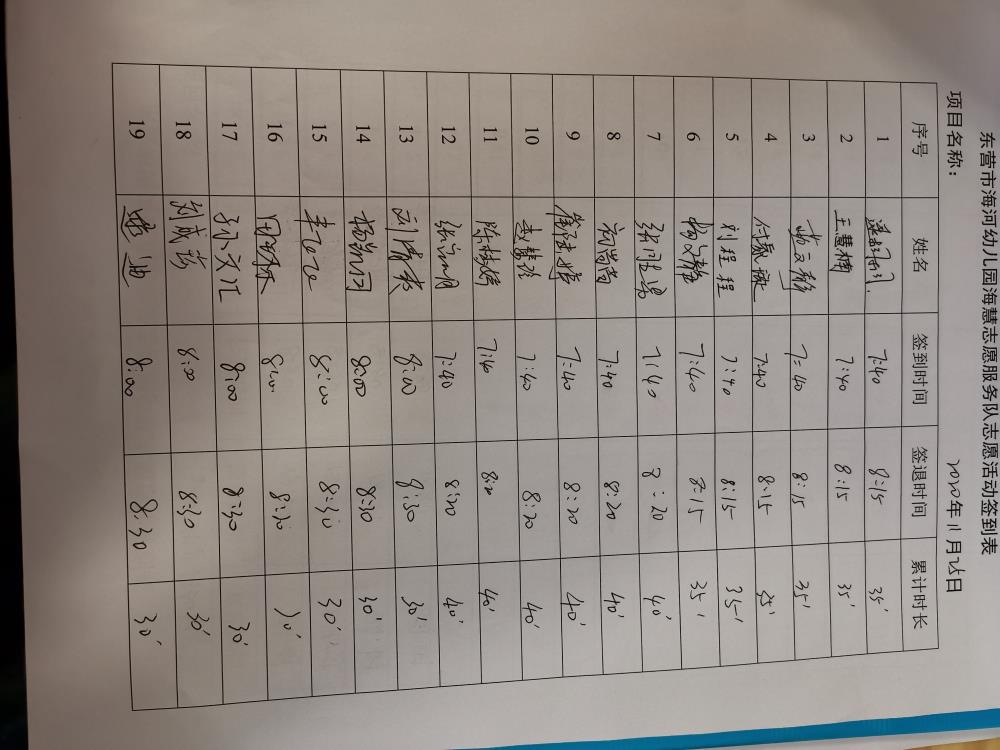 东营市海河幼儿园海慧志愿服务队志愿活动签到表
项目名称： 2020年11月25日
序号 姓名 签到时间 签退时间 累计时长
1 7:40 8:15 35'
2 王慧楠 7:40 8:15 35'
3 7:40 8:15 35'
4 7:40 8:15 35'
5 刘程程 7:40 8:15 35'
6 杨文静 7:40 8:15 35'
7 7:40 8:20 40'
8 7:40 8:20 40'
9 7:40 8:20 40'
10 7:40 8:20 40'
11 陈梅婷 7:40 8:2 40'
12 7:40 8:20 40'
13 8:00 8:30 30'
14 8:00 8:30 30'
15 8:00 8:30 30'
16 8:00 8:30 30'
17 孙文汇 8:00 8:30 30'
18 8:00 8:30 30'
19 8:00 8:30 30'